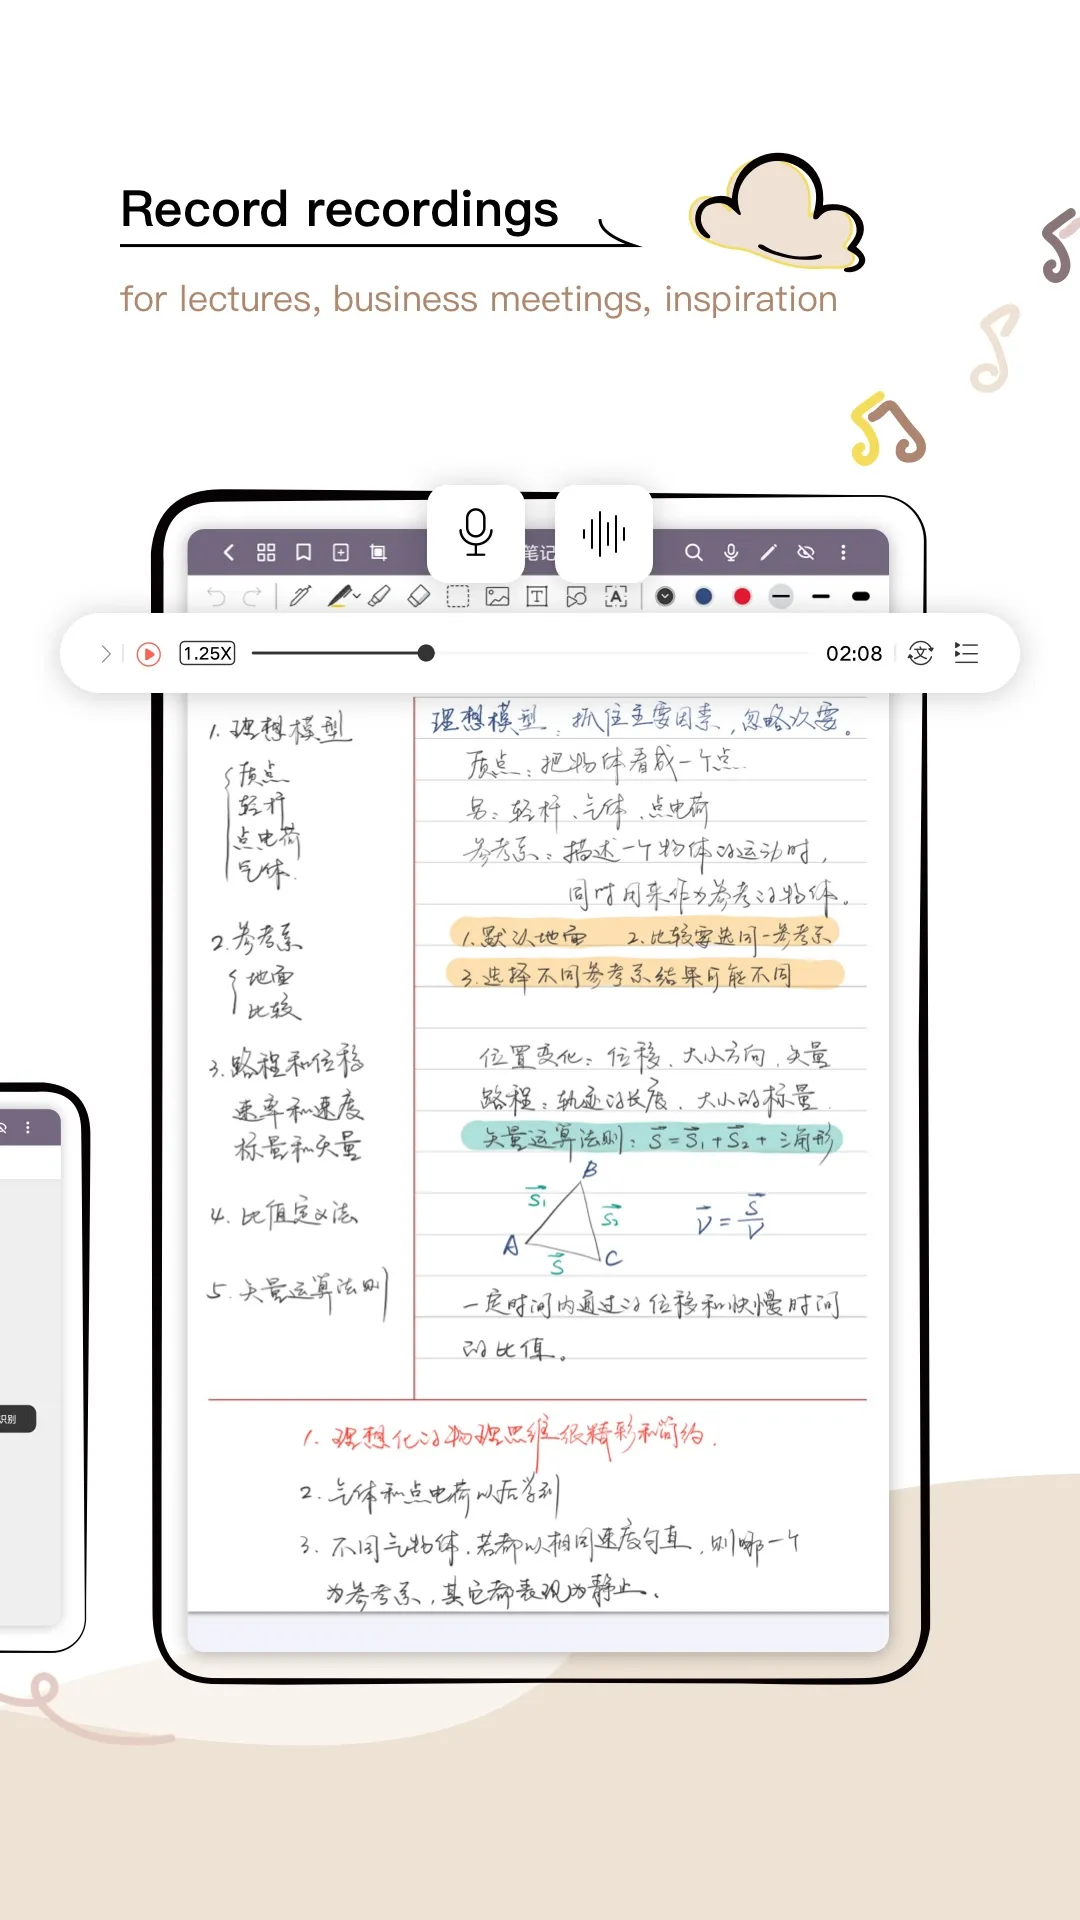 Record recordings
for lectures, business meetings, inspiration
笔记
1.25X
02:08
1. 理想模型
质点
轻杆
点电荷
气体.
2. 参考系
地面
比较
3. 路程和位移
速率和速度
标量和矢量
4. 比值定义法
5. 矢量运算法则
理想模型: 抓住主要因素, 忽略次要。
质点: 把物体看成一个点.
另: 轻杆、气体、点电荷
参考系: 描述一个物体的运动时,
同时用来作为参考的物体。
1. 默认地面 2. 比较要选同一参考系
3. 选择不同参考系结果可能不同
位置变化: 位移、大小方向、矢量
路程: 轨迹的长度、大小的标量.
矢量运算法则: S⃗=S⃗₁+S⃗₂+ 三角形
B
S⃗₁
S⃗₂
A
S⃗
C
V⃗ = S⃗/V
一定时间内通过的位移和快慢时间
的比值。
1. 理想化的物理思维很精彩和简约.
2. 气体和点电荷以后学到
3. 不同气物体, 若都以相同速度匀直, 则哪一个
为参考系, 其它都表现为静止.
识别